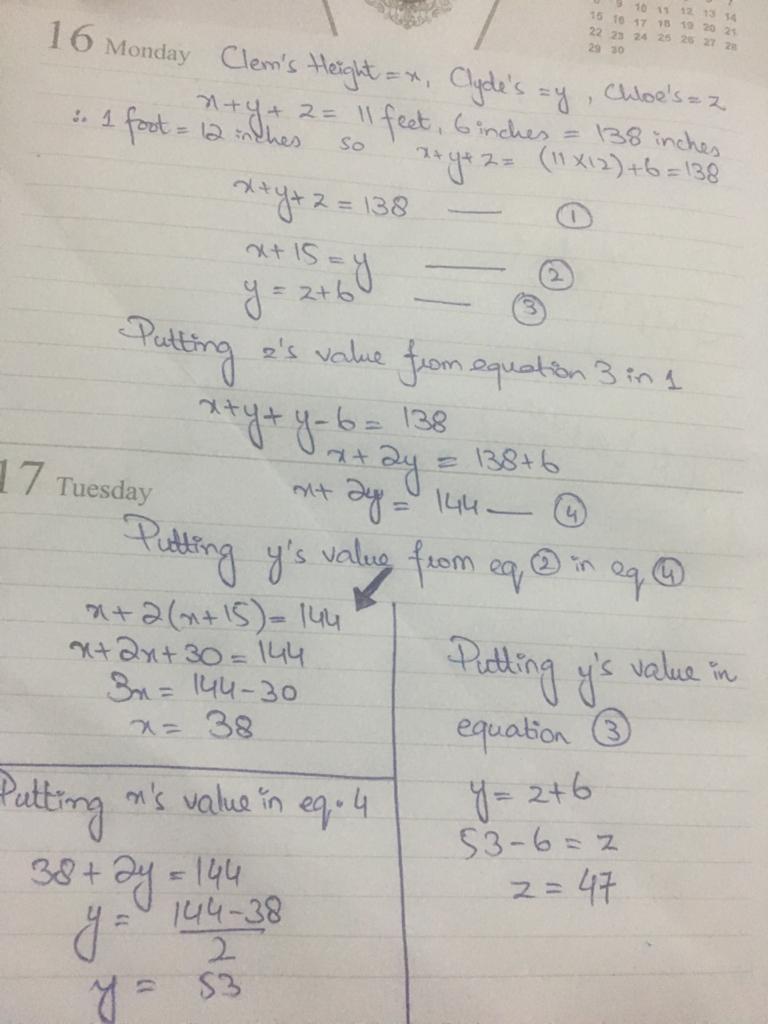 8 9 10 11 12 13 14
15 16 17 18 19 20 21
22 23 24 25 26 27 28
29 30
16 Monday
Clem's Height = x, Clyde's = y, Chloe's = z
x+y+z = 11 feet, 6 inches = 138 inches
∴ 1 foot = 12 inches so x+y+z = (11x12)+6=138
x+y+z = 138 — ①
x+15 = y — ②
y = z+6 — ③
Putting z's value from equation 3 in 1
x+y+y-6 = 138
x+2y = 138+6
17 Tuesday
x+2y = 144 — ④
Putting y's value from eq ② in eq ④
x+2(x+15) = 144
x+2x+30 = 144
3x = 144-30
x = 38
Putting x's value in eq. 4
38+2y = 144
y = 144-38
2
y = 53
Putting y's value in
equation ③
y = z+6
53-6 = z
z = 47